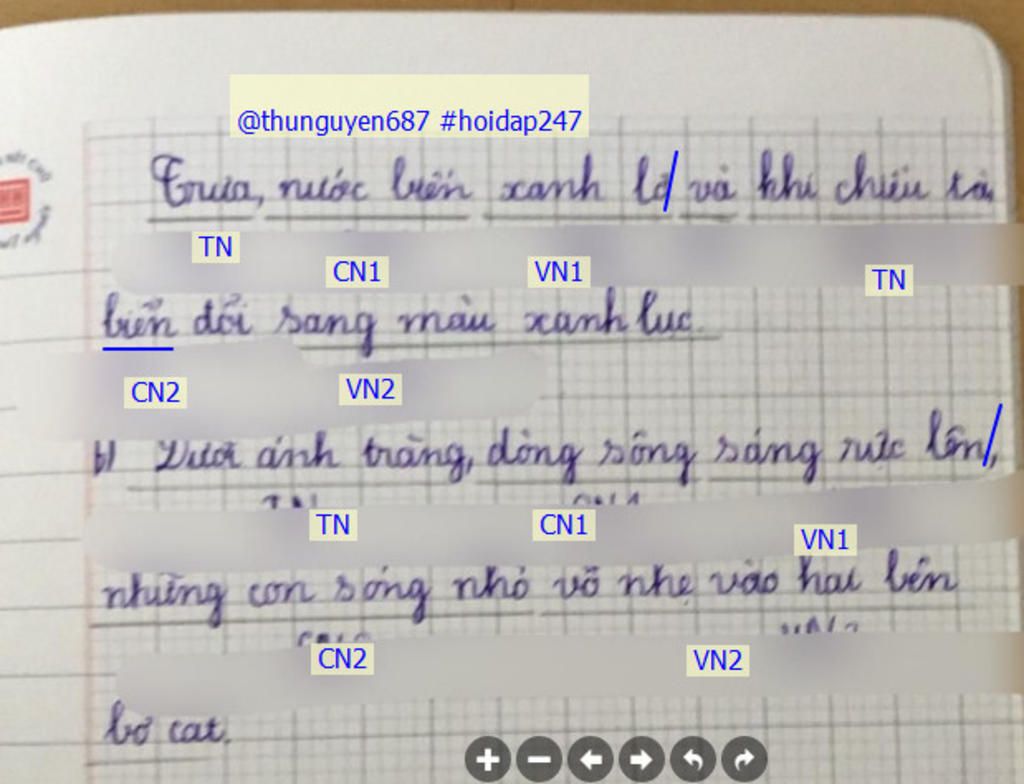 @thunguyen687 #hoidap247
Trưa, nước biển xanh lơ/ và khi chiều tà,
TN CN1 VN1 TN
biển đổi sang màu xanh lục.
CN2 VN2
b) Dưới ánh trăng, dòng sông sáng rực lên/,
TN CN1 VN1
những con sóng nhỏ vỗ nhẹ vào hai bên
CN2 VN2
bờ cát.